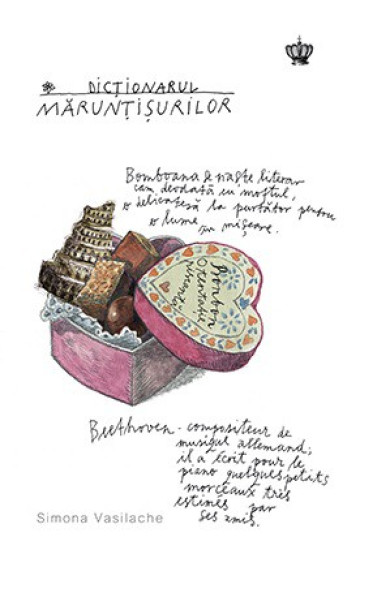 DICȚIONARUL
MĂRUNȚIȘURILOR
Bomboana se naște literar
cam deodată cu moștul,
o delicatesă la purtător pentru
o lume în mișcare.
Bonbon
O tentație
Beethoven - compositeur de
musique allemand;
il a écrit pour le
piano quelques petits
morceaux très
estimés par
ses amis.
Simona Vasilache